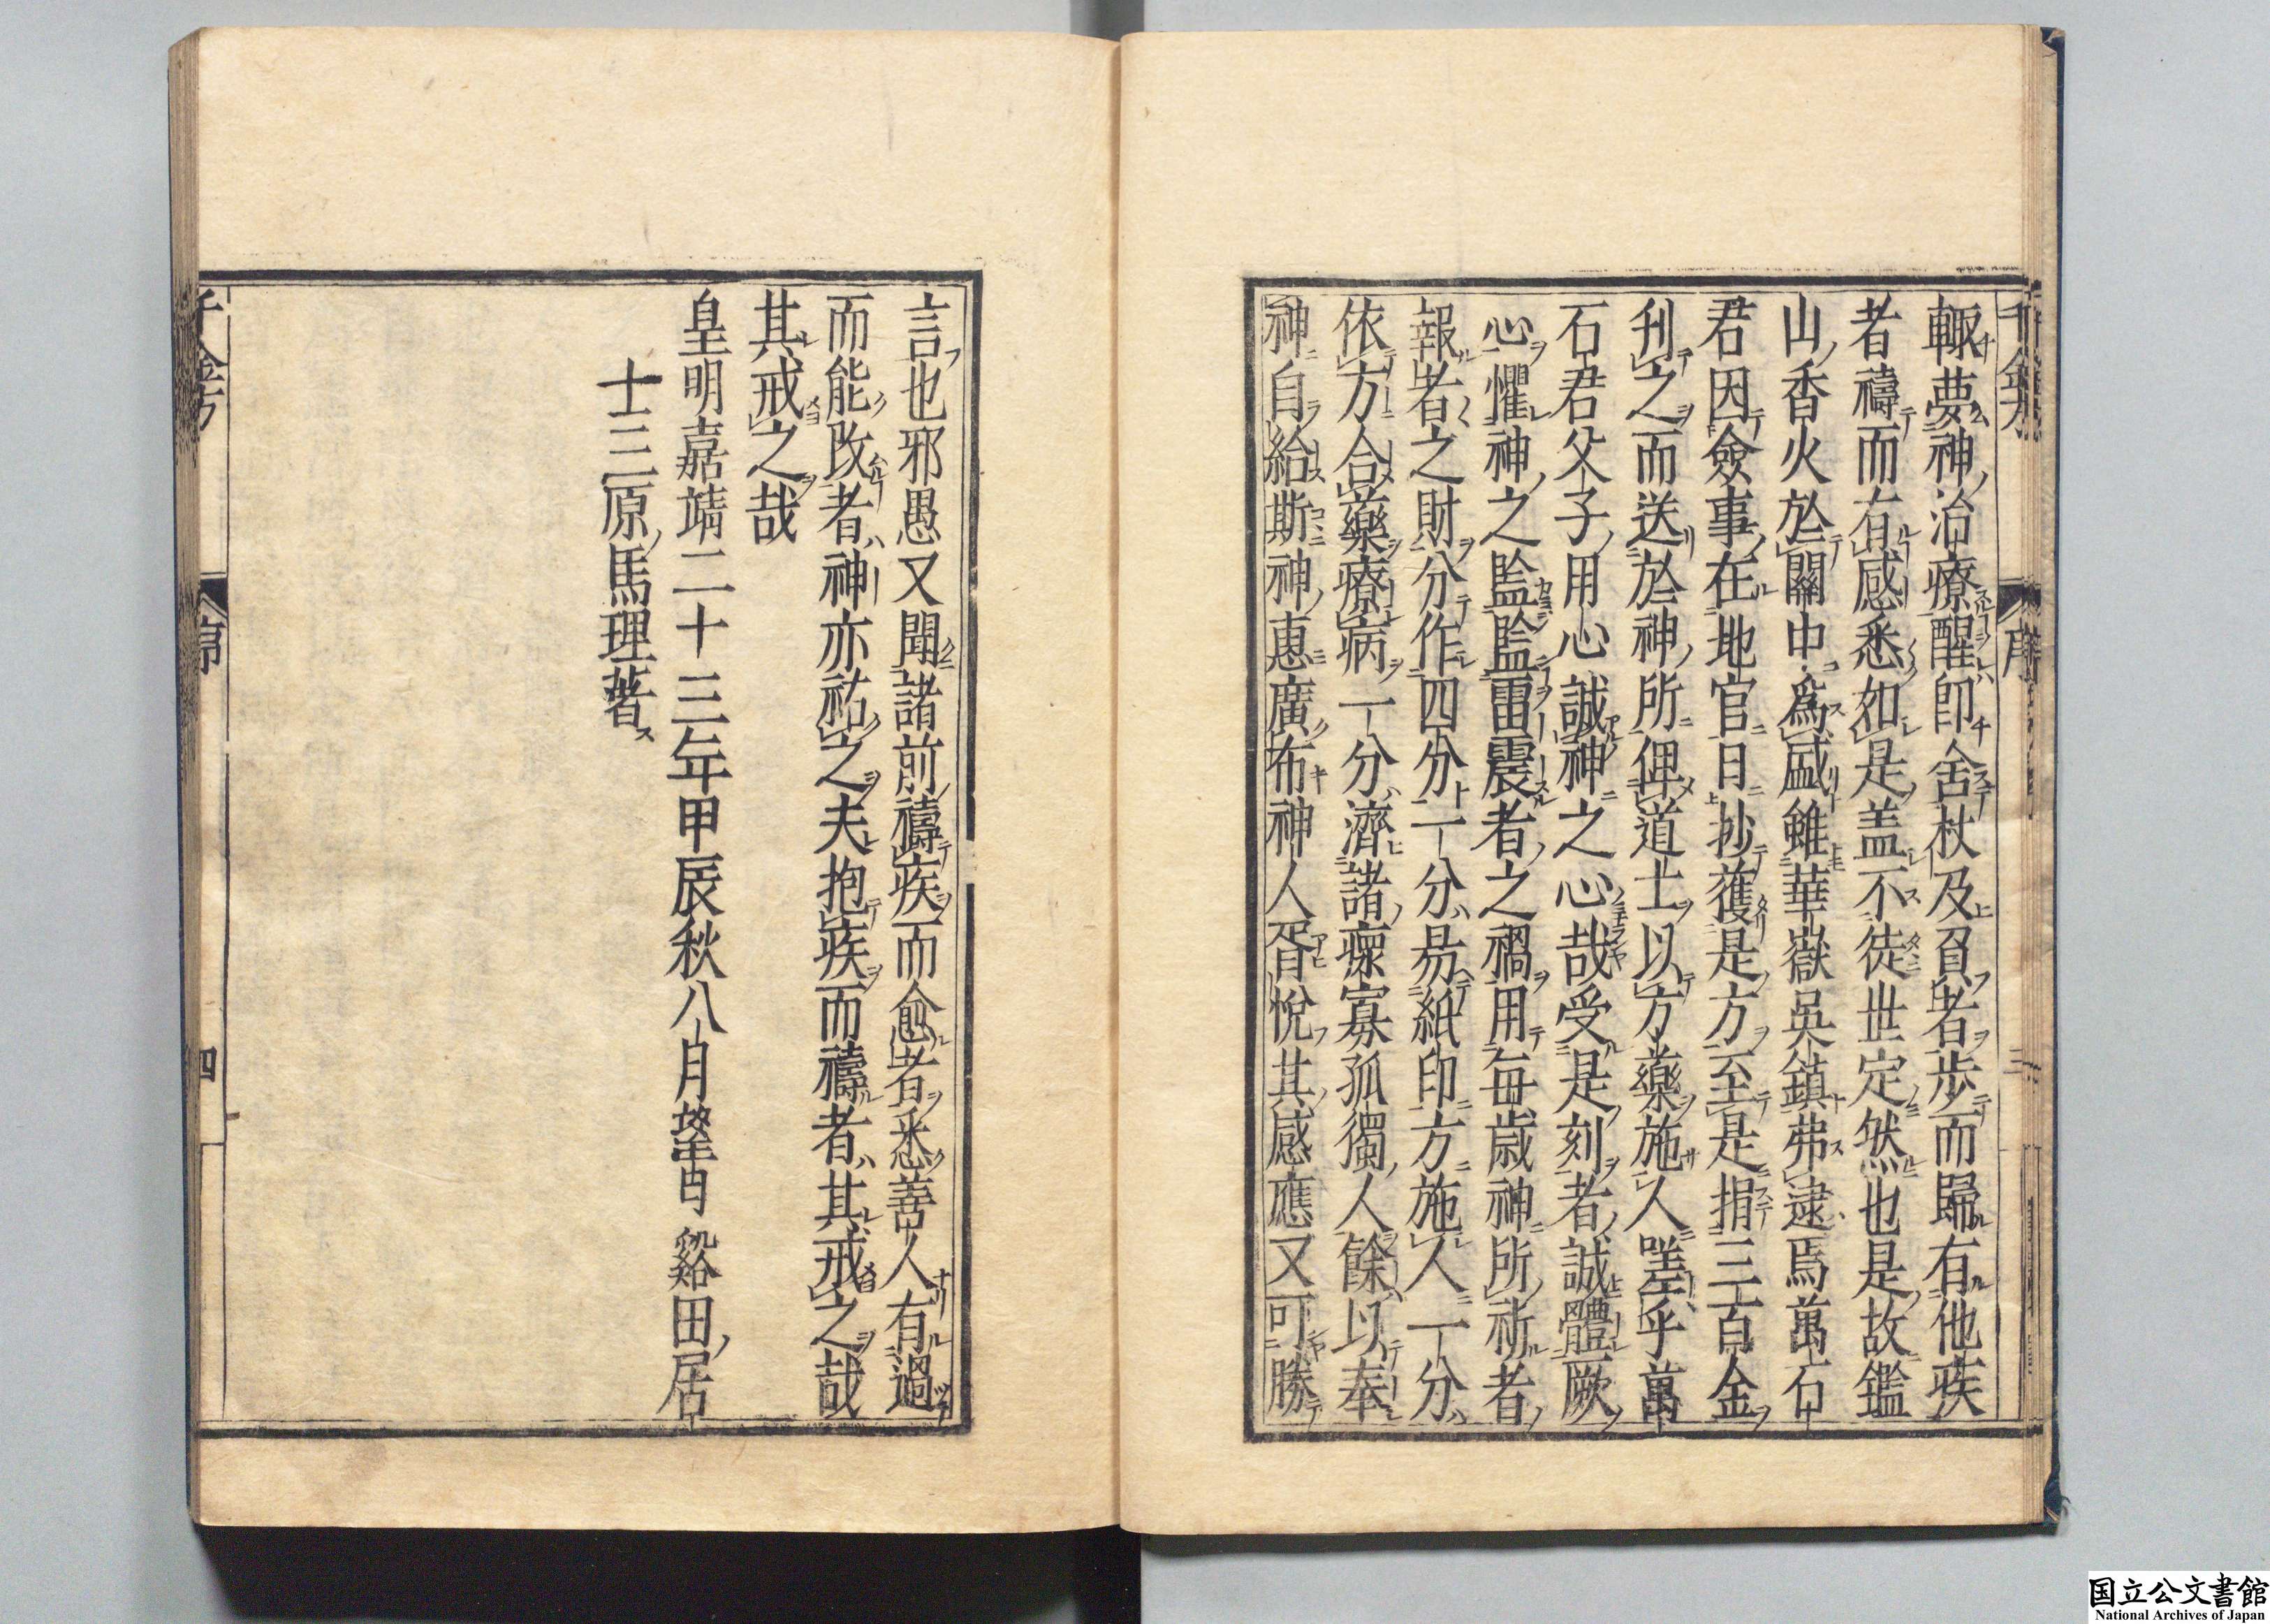 輙夢神治療醒即舍杖及負者步而歸有他疾
者禱而有感悉如是盖不徒世定然也是故鑑
山香火於關中爲盛雖華嶽吳鎮弗逮焉萬石
君因僉事在地官日抄獲是方至是捐三百金
刋之而送於神所俾道士以方藥施人嗟乎萬
石君父子用心誠神之心哉受是刻者誠體厥
心懼神之監監雷震者之禍用每歲神所祈者
報者之財分作四分一分易紙印方施人一分
依方合藥療病一分濟諸瘝寡孤獨人餘以奉
神自給斯神惠廣布神人胥悅其感應又可勝
言也邪愚又聞諸前禱疾而愈者悉善人有過
而能改者神亦祐之夫抱疾而禱者其戒之哉
其戒之哉
皇明嘉靖二十三年甲辰秋八月望日谿田居
士三原馬理著
序
三
四
国立公文書館
National Archives of Japan